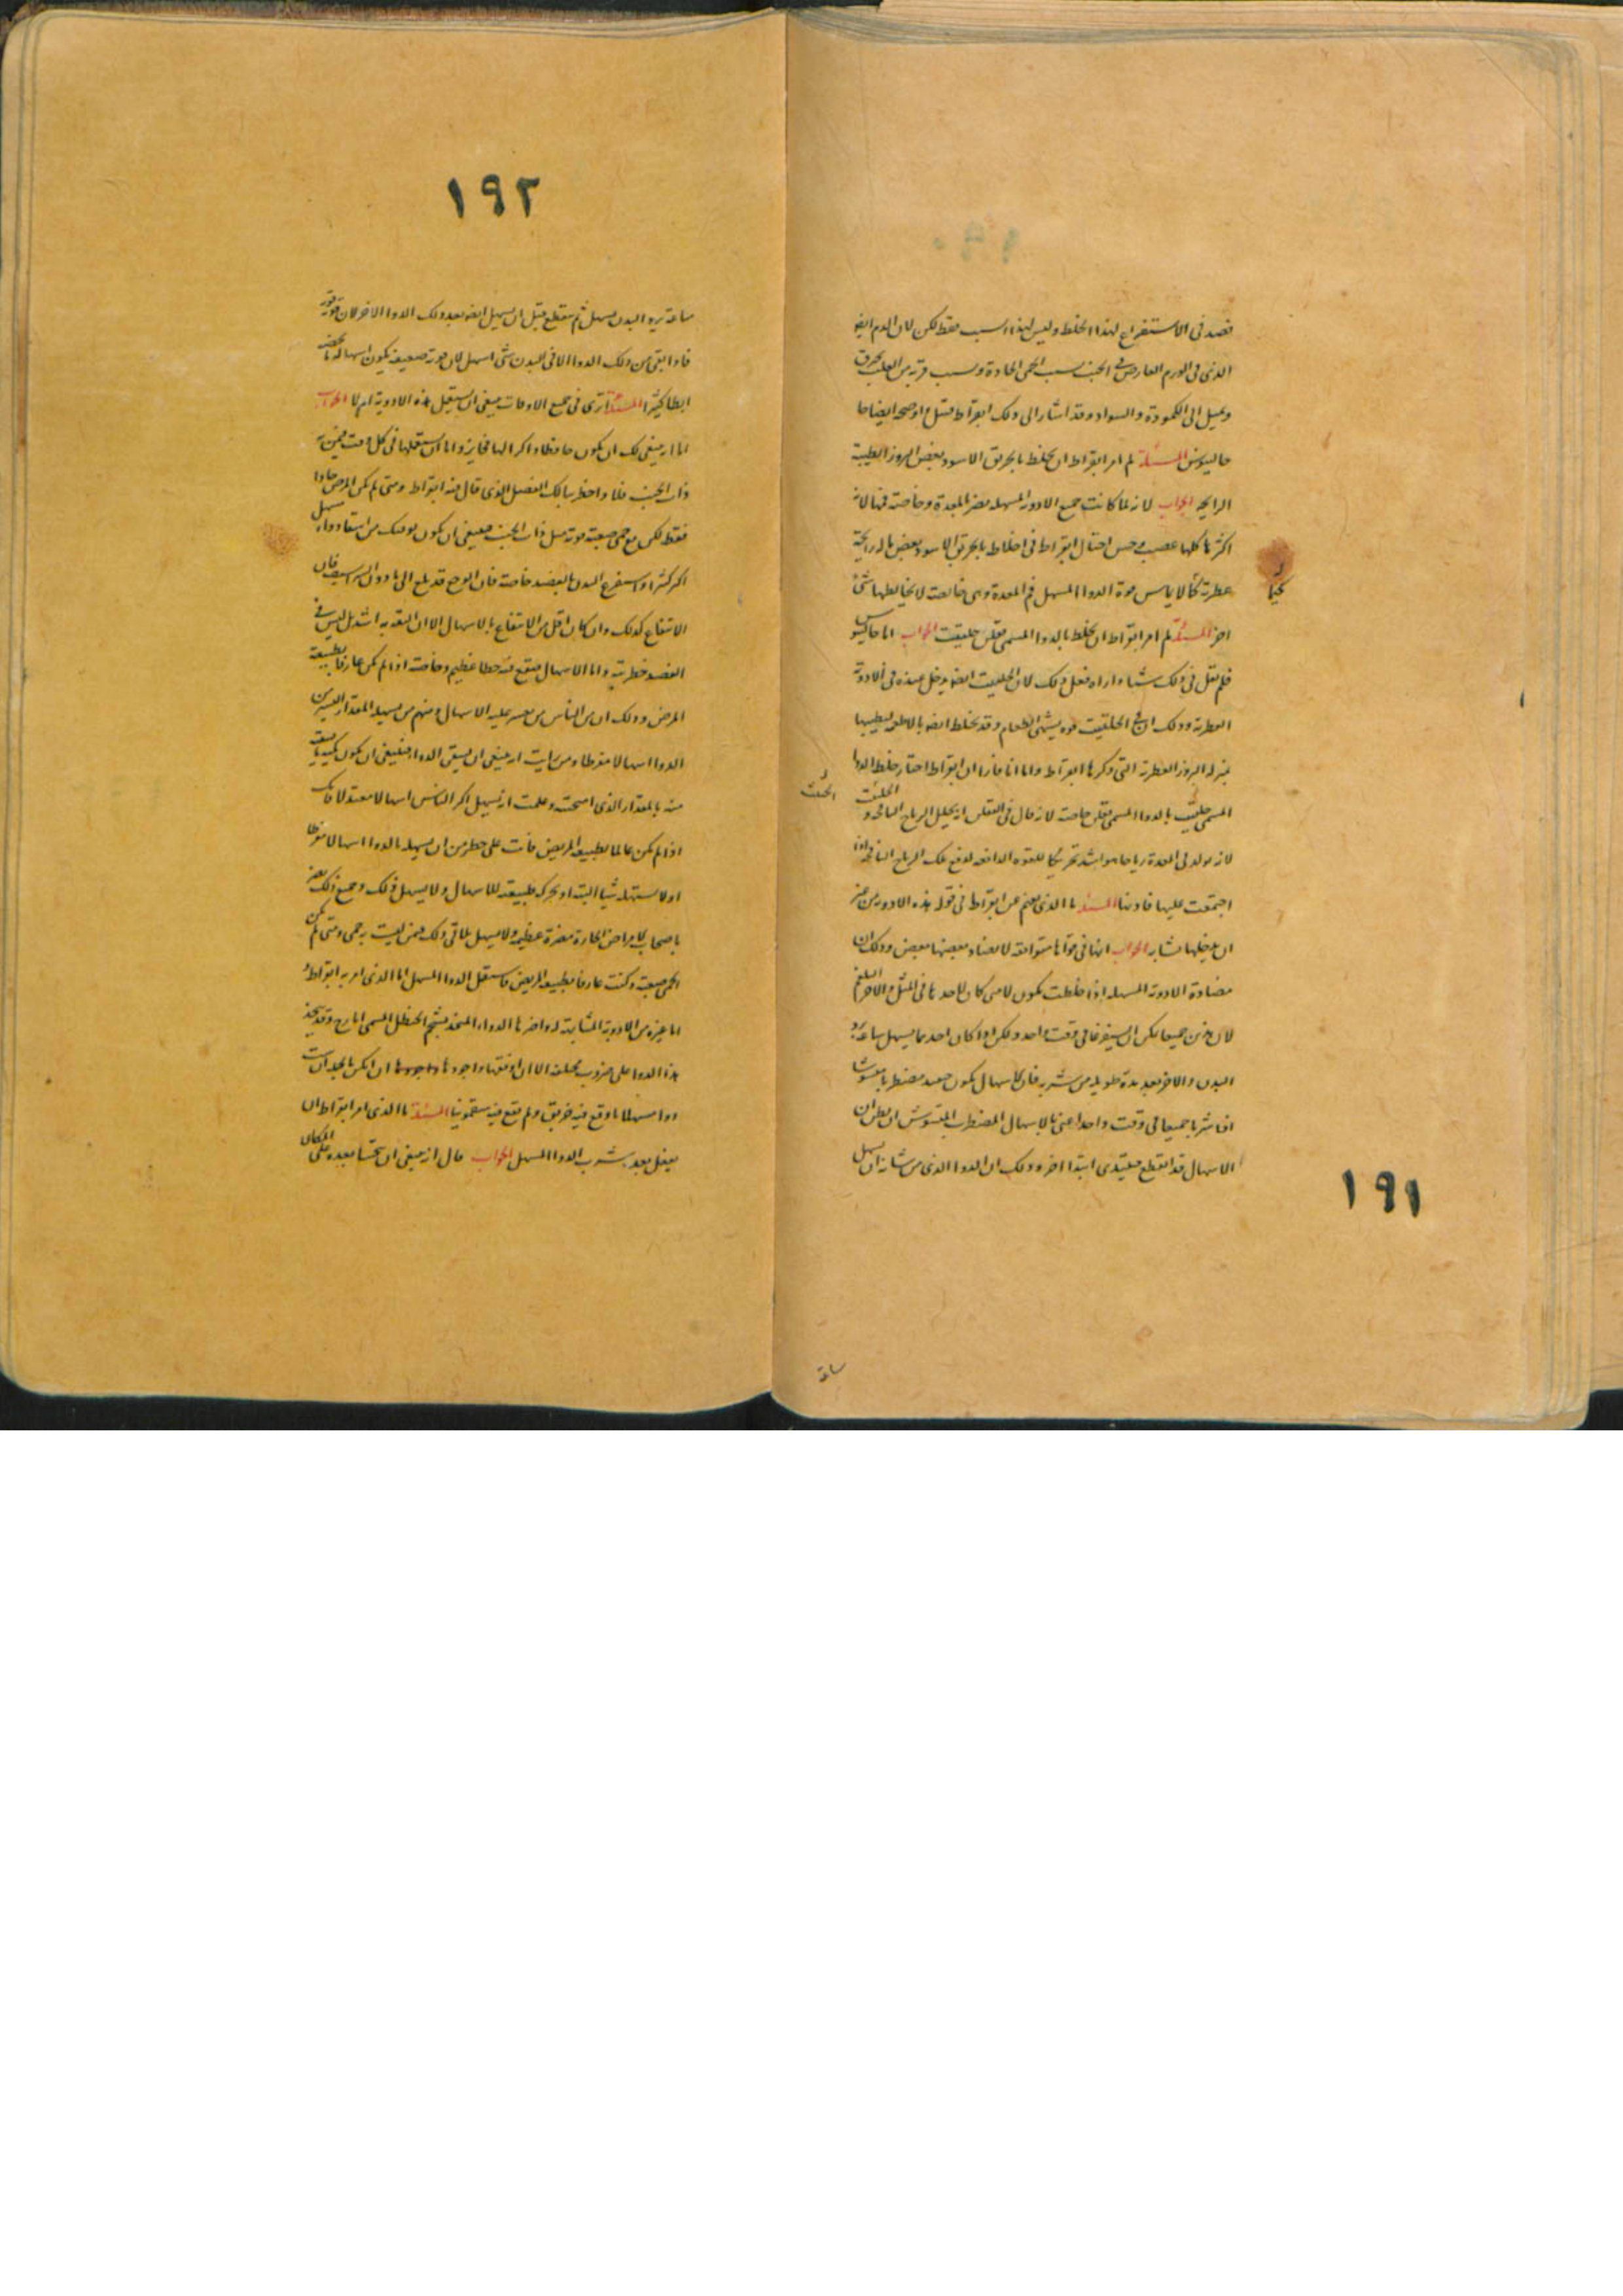 قصد في الاستفراغ لهذا الخلط وليس لهذا السبب فقط لكن لان الدم ايضا
الذي في الورم العارض في الجنب بسبب الحمى الحادة وبسبب قربه من القلب يحترق
ويميل الى الكمودة والسواد وقد اشار الى ذلك ابقراط قبل اوضحه ايضا جا
جالينوس المسئلة لم امر ابقراط ان يخلط بالخربق الاسود بعض البزور الطيبة
الرايحه الجواب لانه لما كانت جميع الادوية المسهله مضر بالمعدة وخاصته فمها لانه
اكثرها كلها عصبي حس احتال ابقراط في اخلاط بالخربق الاسود بعض ماله رايحة
عطرية كما لا يماس قوة الدوا المسهل فم المعدة وهي خالصة لا يخالطها شئ
اخر المسئلة لم امر ابقراط ان يخلط بالدوا المسمى حلتيت الجواب اما جالينوس
فلم يقل في ذلك شيا واراه فعل ذلك لان الحلتيت ايضا يدخل عنده في الادوية
العطرية وذلك ان الحلتيت قوه يشهي الطعام وقد يخلط ايضا بالاطعمه ليطيبها
بمنزله البزور العطرية التي ذكرها ابقراط واما انا فارا ان ابقراط اختار خلط الدوا
المسمى حلتيت بالدوا المسمى خاصة لانه قال في انه يحلل الرياح النافخه و
الحلتيت
لانه يولد في المعدة رياحا هو اشد تحريكا للقوه الدافعه لدفع تلك الرياح النافخه اذا
اجتمعت عليها فاذينا المسئلة ما الذي نفهم عن ابقراط في قوله هذه الادوية من غير
ان يدخلها تشابه الجواب انها في قواها متوافقه لا تضاد بعضها بعض وذلك ان
مضادة الادوية المسهله اذا خلطت تكون لا متى كان لاحدها في المثل والاخر البلغم
لان هذين جميعا يمكن ان يستفرغا في وقت واحد ولكن اذا كان احدهما يسهل ساعة يرد
البدن والاخر بعد مدة طويله من شربه فان الاسهال يكون حينئذ مضطربا مشوشا
اذا شربا جميعا في وقت واحد اعني بالاسهال المضطرب المشوش ان يظن ان
الاسهال قد انقطع فيبتدي ابتدا اخر وذلك ان الدوا الذي من شانه ان يسهل
١٩١
ساعة
١٩٢
ساعة يرد البدن يسهل ثم ينقطع قبل ان يسهل ايضا بعد ذلك الدوا الاخر لان قوته
فاذا بقي من ذلك الدوا الاخر في البدن شئ اسهل لان قوته ضعيفه يكون اسهاله
ابطا كثيرا المسئلة اترى في جميع الاوقات ينبغي ان يستعمل هذه الادوية ام لا الجواب
اما انه ينبغي لك ان يكون حافظا ذاكرا لها فجايز واما ان تستعملها في كل وقت فيمن به
ذات الجنب فلا واحفظ ببالك الفصل الذي قال فيه ابقراط ومتى لم يكن المرض حادا
فقط لكن مع حمى صعبة قوية مثل ذات الجنب فينبغي ان يكون توقيك من اسقا دوا مسهل
اكثر كثيرا واستفرغ البدن بالفصد خاصة فان الوجع قد بلغ الى ما دون الشراسيف فان
الانتفاع كذلك وان كان اقل من الانتفاع بالاسهال الا ان الثقة به اشد بل ليس في
الفصد خطر بته واما الاسهال فيقع فيه خطا عظيم وخاصة اذا لم تكن عارفا بطبيعة
المرض وذلك ان من الناس من يعسر عليه الاسهال ومنهم من يسهله المقدار اليسير من
الدوا اسهالا مفرطا ومن رايت انه ينبغي ان يسقى الدوا فينبغي ان يكون
منه بالمقدار الذي امتحنته وعلمت انه يسهل اكثر الناس اسهالا معتدلا فانك
اذا لم تكن عالما بطبيعه المريض فانت على خطر من ان يسهله بالدوا اسهالا مفرطا
اولا يستهله شيا البته او يحرك طبيعته للاسهال ولا يسهل ذلك وجميع ذلك يضر
باصحاب الامراض الحارة مضرة عظيمه ولا يسهل تلافي ذلك فيمن ليست به حمى ومتى لم تكن
الحمى صعبة وكنت عارفا بطبيعه المريض فاستعمل الدوا المسهل اما الذي امر به ابقراط
اما غيره من الادوية المشابهة له واخرها الدوا المتخذ بشحم الحنظل المسمى ايارج وقد يتخذ
هذا الدوا على ضروب مختلفه الا ان اوفقها واجودها
دوا مسهلا ما وقع فيه خربق ولم تقع فيه سقمونيا المسئلة ما الذي امر ابقراط ان
يفعل بعد شرب الدوا المسهل الجواب قال انه ينبغي ان يتحسا بعده على المكان